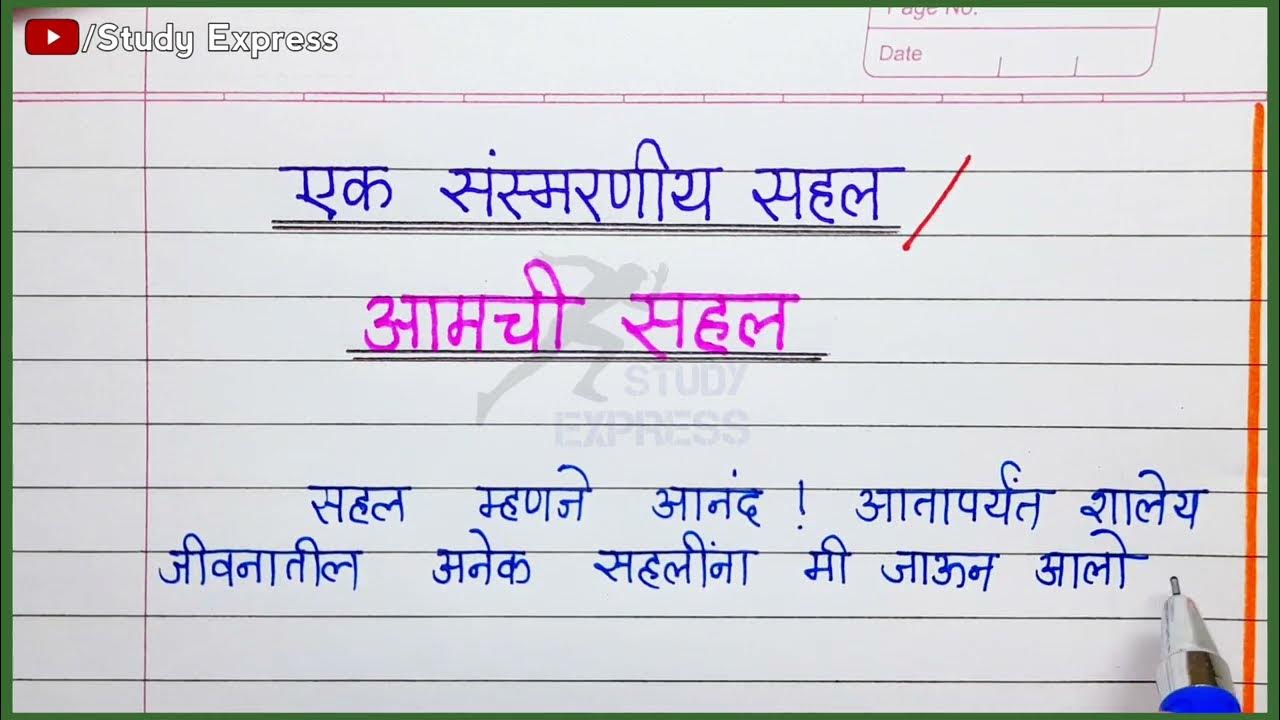 /Study Express
Page No.
Date
एक संस्मरणीय सहल /
आमची सहल
STUDY
EXPRESS
सहल म्हणजे आनंद ! आतापर्यंत शालेय
जीवनातील अनेक सहलींना मी जाऊन आलो